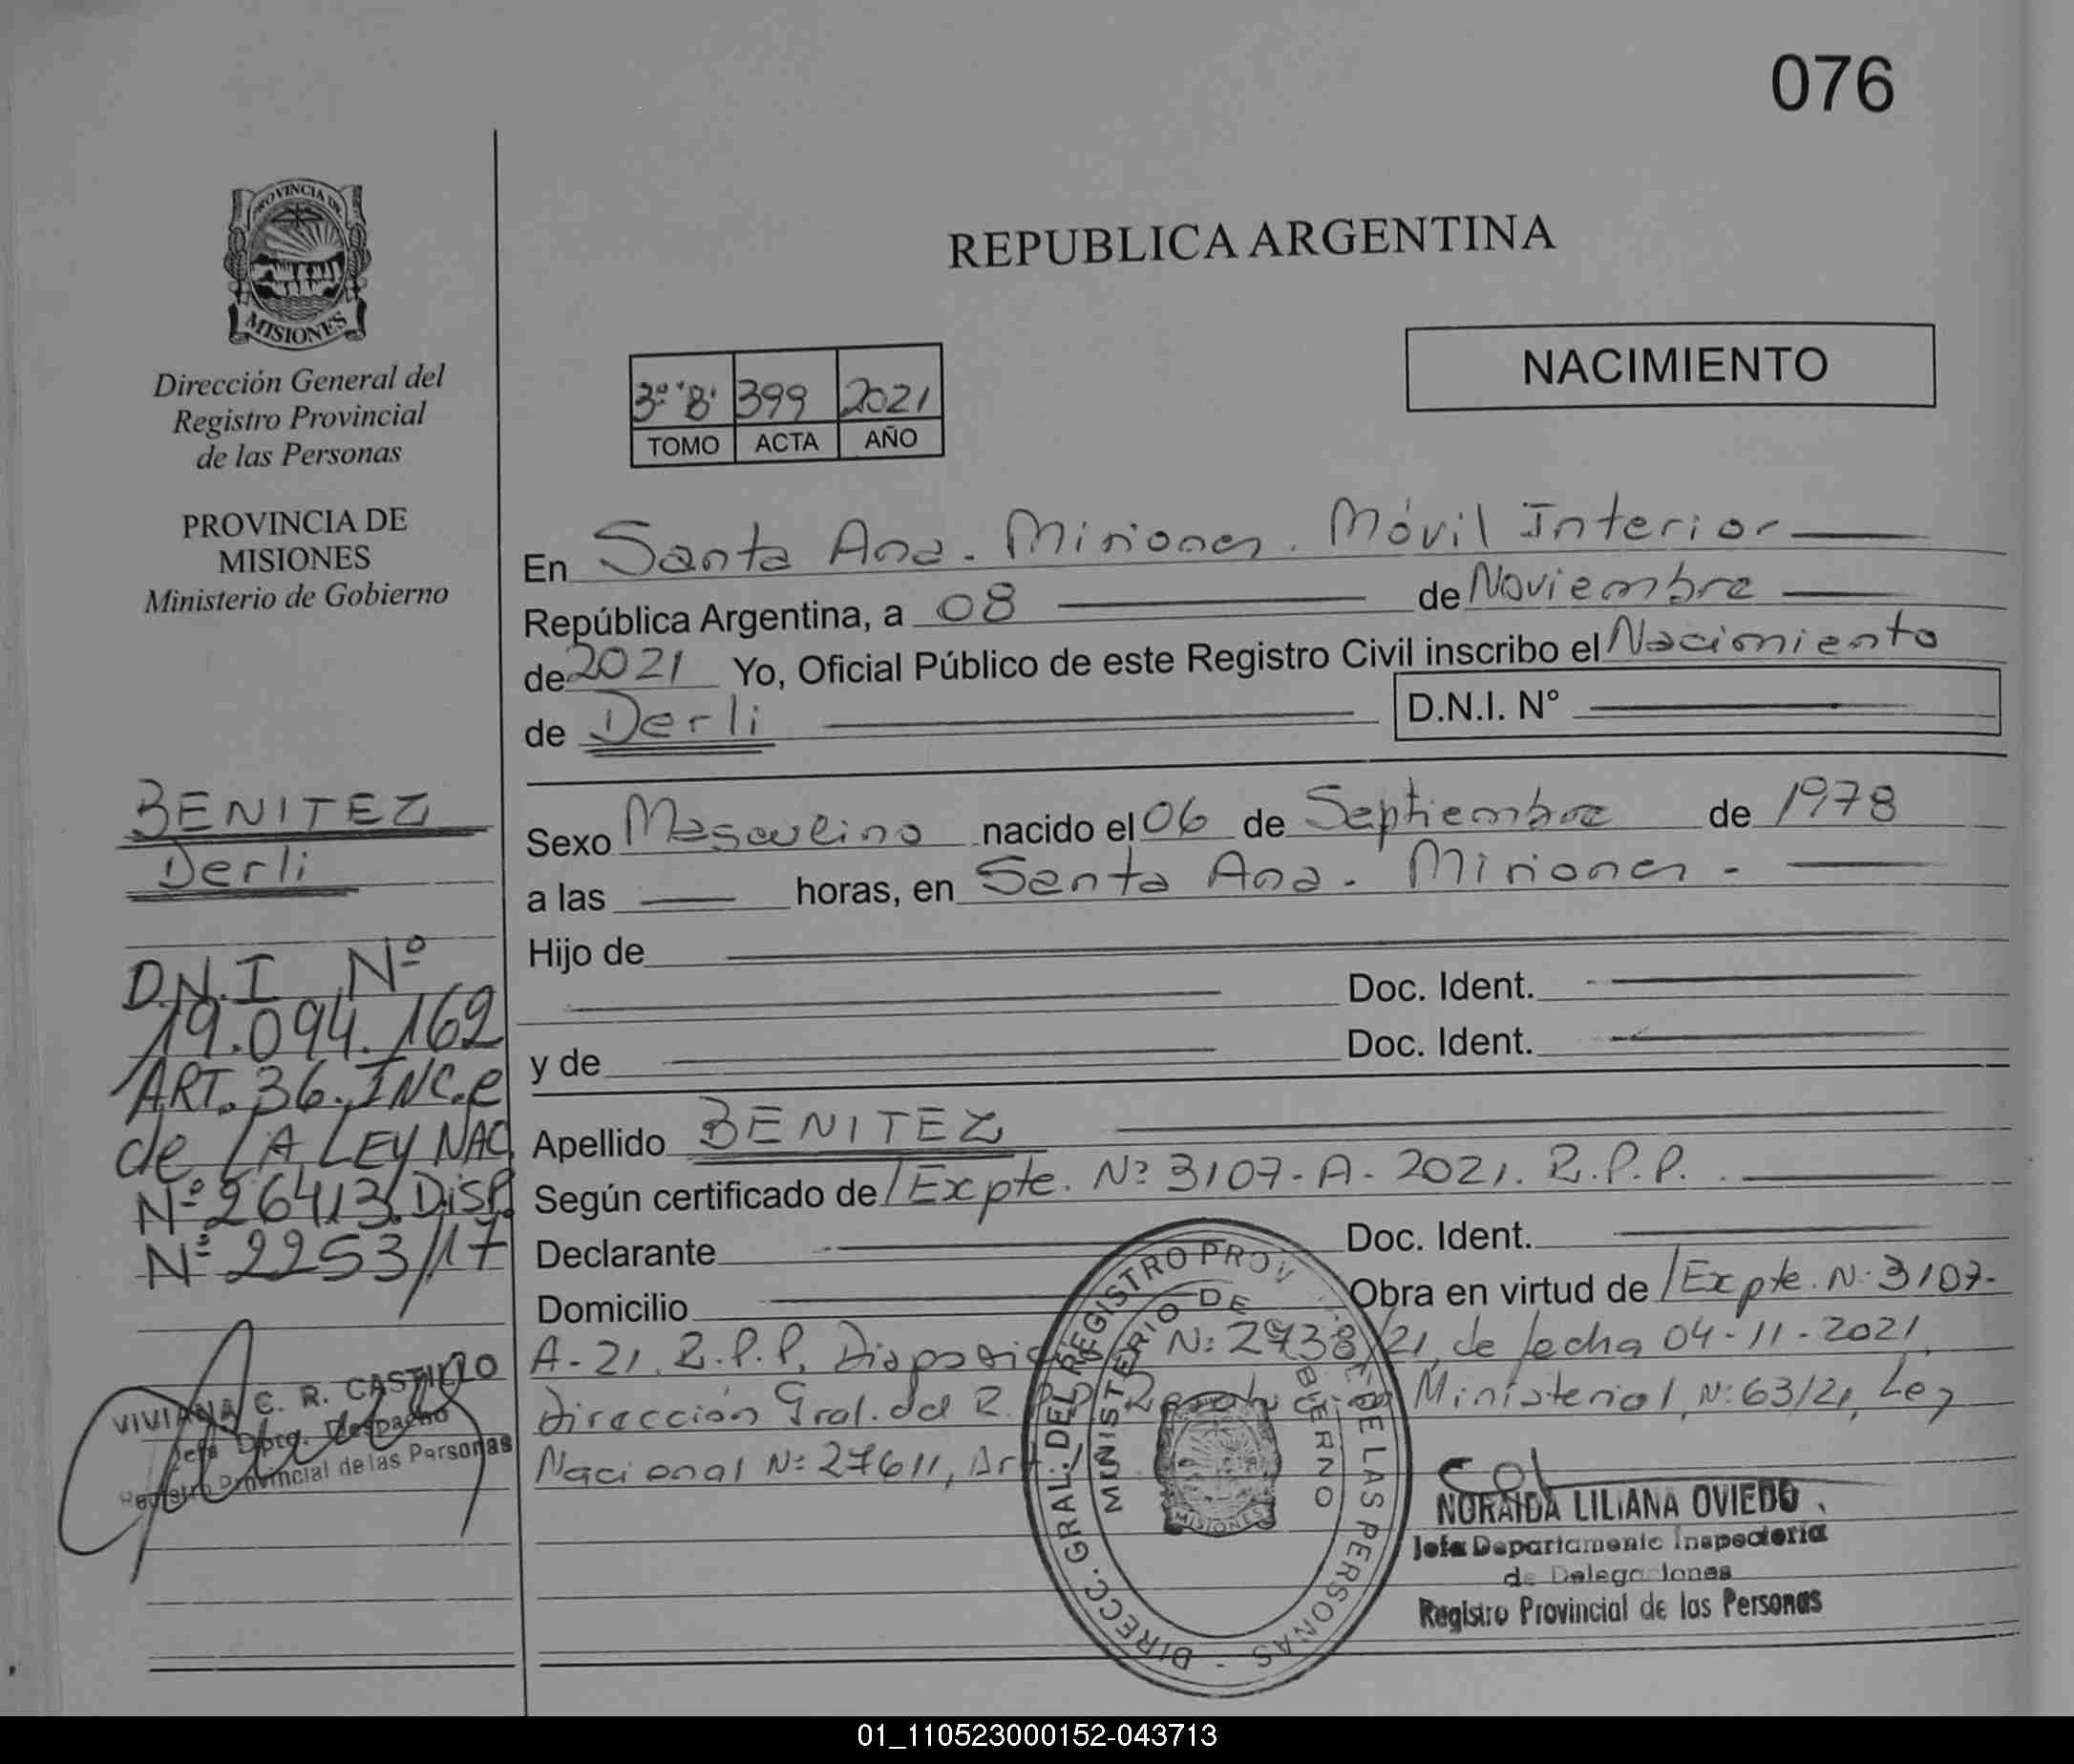 076
PROVINCIA DE
MISIONES
Dirección General del
Registro Provincial
de las Personas
PROVINCIA DE
MISIONES
Ministerio de Gobierno
BENITEZ
Derli
D.N.I Nº
19.094.162
ART. 36. INC. e
de LA LEY NAC.
Nº 26413. DISP.
Nº 2253/17
VIVIANA C. R. CASTILLO
Jefa Dpto. Despacho
Registro Provincial de las Personas
REPUBLICA ARGENTINA
NACIMIENTO
3º "B" 399 2021
TOMO ACTA AÑO
En Santa Ana. Misiones. Móvil Interior
República Argentina, a 08 de Noviembre
de 2021 Yo, Oficial Público de este Registro Civil inscribo el Nacimiento
de Derli D.N.I. N°
Sexo Masculino nacido el 06 de Septiembre de 1978
a las horas, en Santa Ana. Misiones.
Hijo de
Doc. Ident.
y de Doc. Ident.
Apellido BENITEZ
Según certificado de/Expte. Nº 3107-A-2021. R.P.P.
Declarante Doc. Ident.
Domicilio Obra en virtud de/Expte. Nº 3107-
A-21. R.P.P. Disposición Nº 2738/21, de fecha 04-11-2021,
Dirección Gral. del R.P.P. Resolución Ministerial, Nº 63/21, Ley
Nacional Nº 27611, Art.
DIRECC. GRAL. DEL REGISTRO PROV DE LAS PERSONAS -
MINISTERIO DE GOBIERNO
MISIONES
NORAIDA LILIANA OVIEDO
Jefa Departamento Inspectoria
de Delegaciones
Registro Provincial de las Personas
01_110523000152-043713